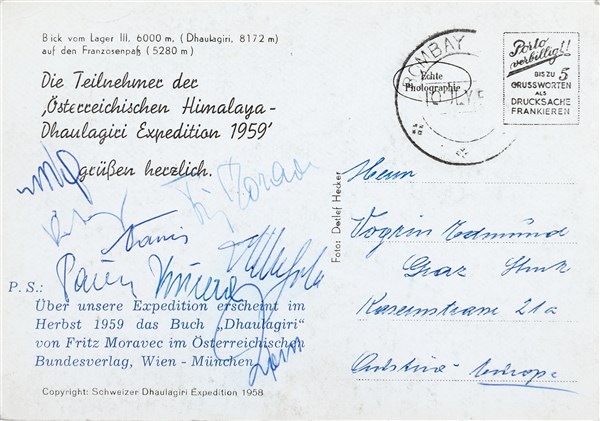 Bick vom Lager III, 6000 m, (Dhaulagiri, 8172 m)
auf den Franzosenpaß (5280 m)
Die Teilnehmer der
‚Österreichischen Himalaya-
Dhaulagiri Expedition 1959‘
grüßen herzlich.
P. S.:
Über unsere Expedition erscheint im
Herbst 1959 das Buch „Dhaulagiri“
von Fritz Moravec im Österreichischen
Bundesverlag, Wien - München.
Copyright: Schweizer Dhaulagiri Expedition 1958
Foto: Detlef Hecker
BOMBAY
Echte
Photographie
Porto
verbilligt!
BIS ZU 5
GRUSSWORTEN
ALS
DRUCKSACHE
FRANKIEREN
Herrn
Vogrin Edmund
Graz
21a
Europe